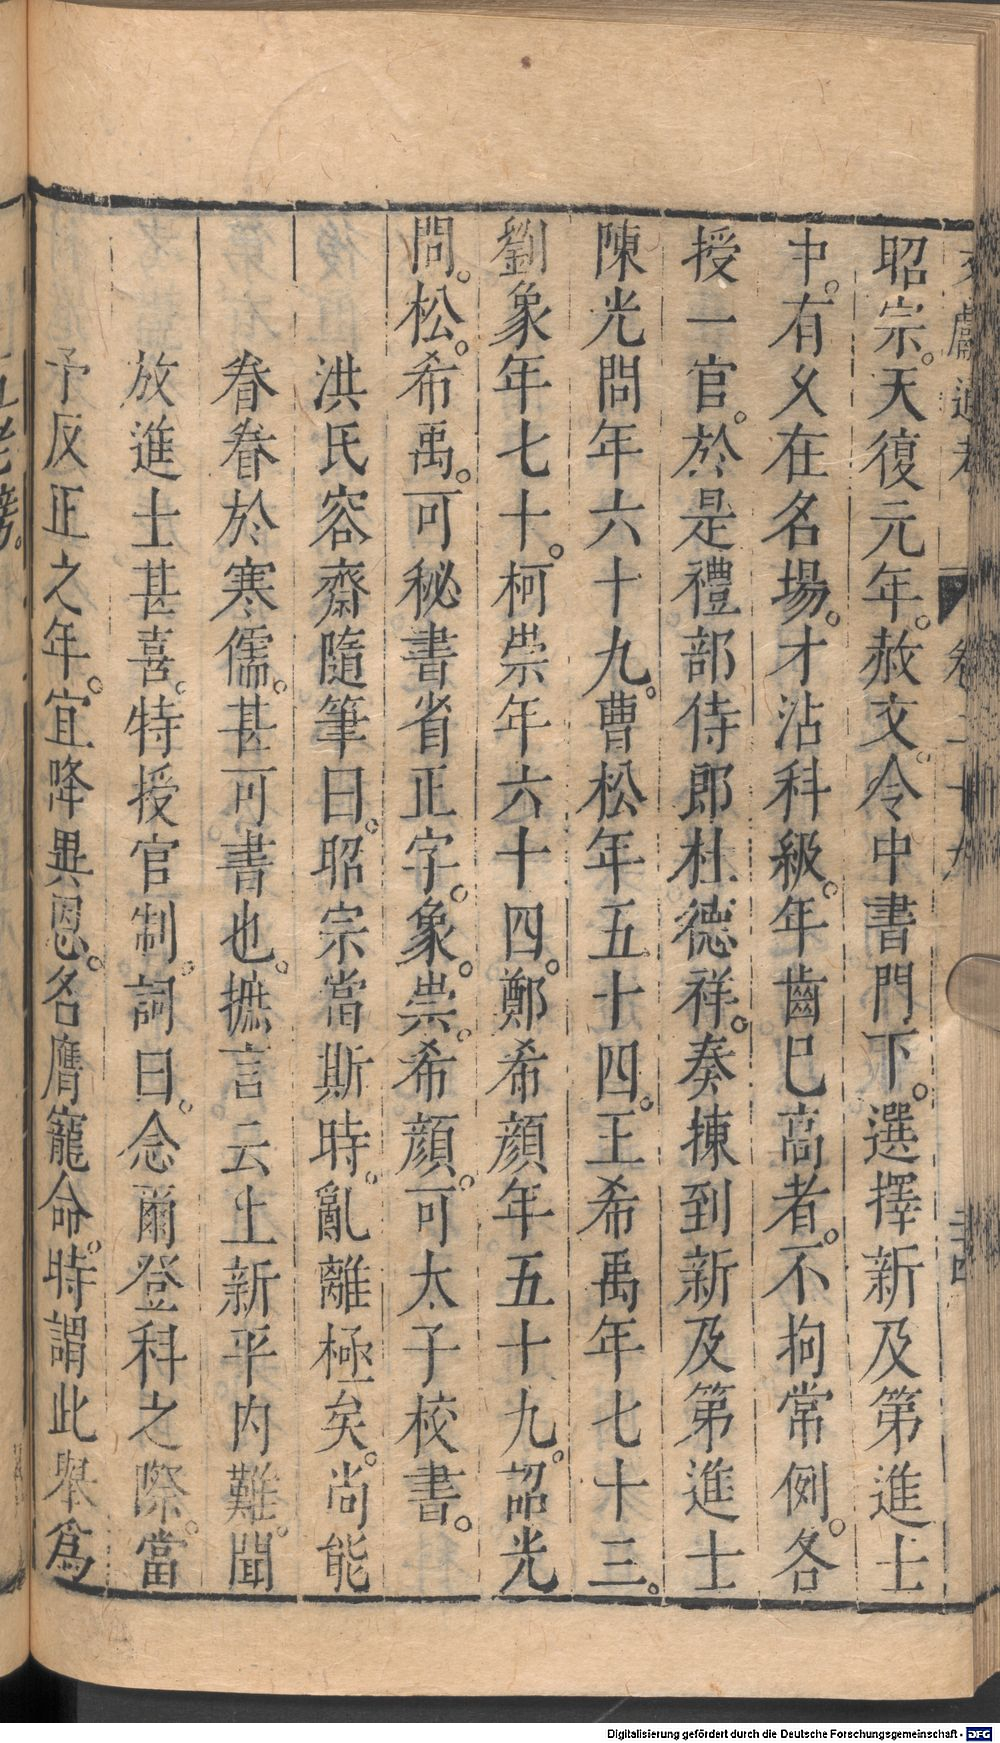 昭宗。天復元年。赦文。令中書門下。選擇新及第進士
中。有久在名場。才沾科級。年齒已高者。不拘常例。各
授一官。於是禮部侍郎杜德祥。奏揀到新及第進士
陳光問年六十九。曹松年五十四。王希禹年七十三。
劉象年七十。柯崇年六十四。鄭希顔年五十九。詔光
問。松。希禹。可秘書省正字。象。崇。希顔。可太子校書。
洪氏容齋隨筆曰。昭宗當斯時。亂離極矣。尚能
眷眷於寒儒。甚可書也。摭言云上新平内難。聞
放進士甚喜。特授官制。詞曰。念爾登科之際。當
予反正之年。宜降異恩。各膺寵命。時謂此舉爲
五老榜。
Digitalisierung gefördert durch die Deutsche Forschungsgemeinschaft - DFG